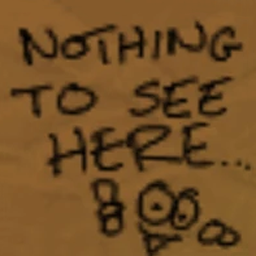 NOTHING
TO SEE
HERE...